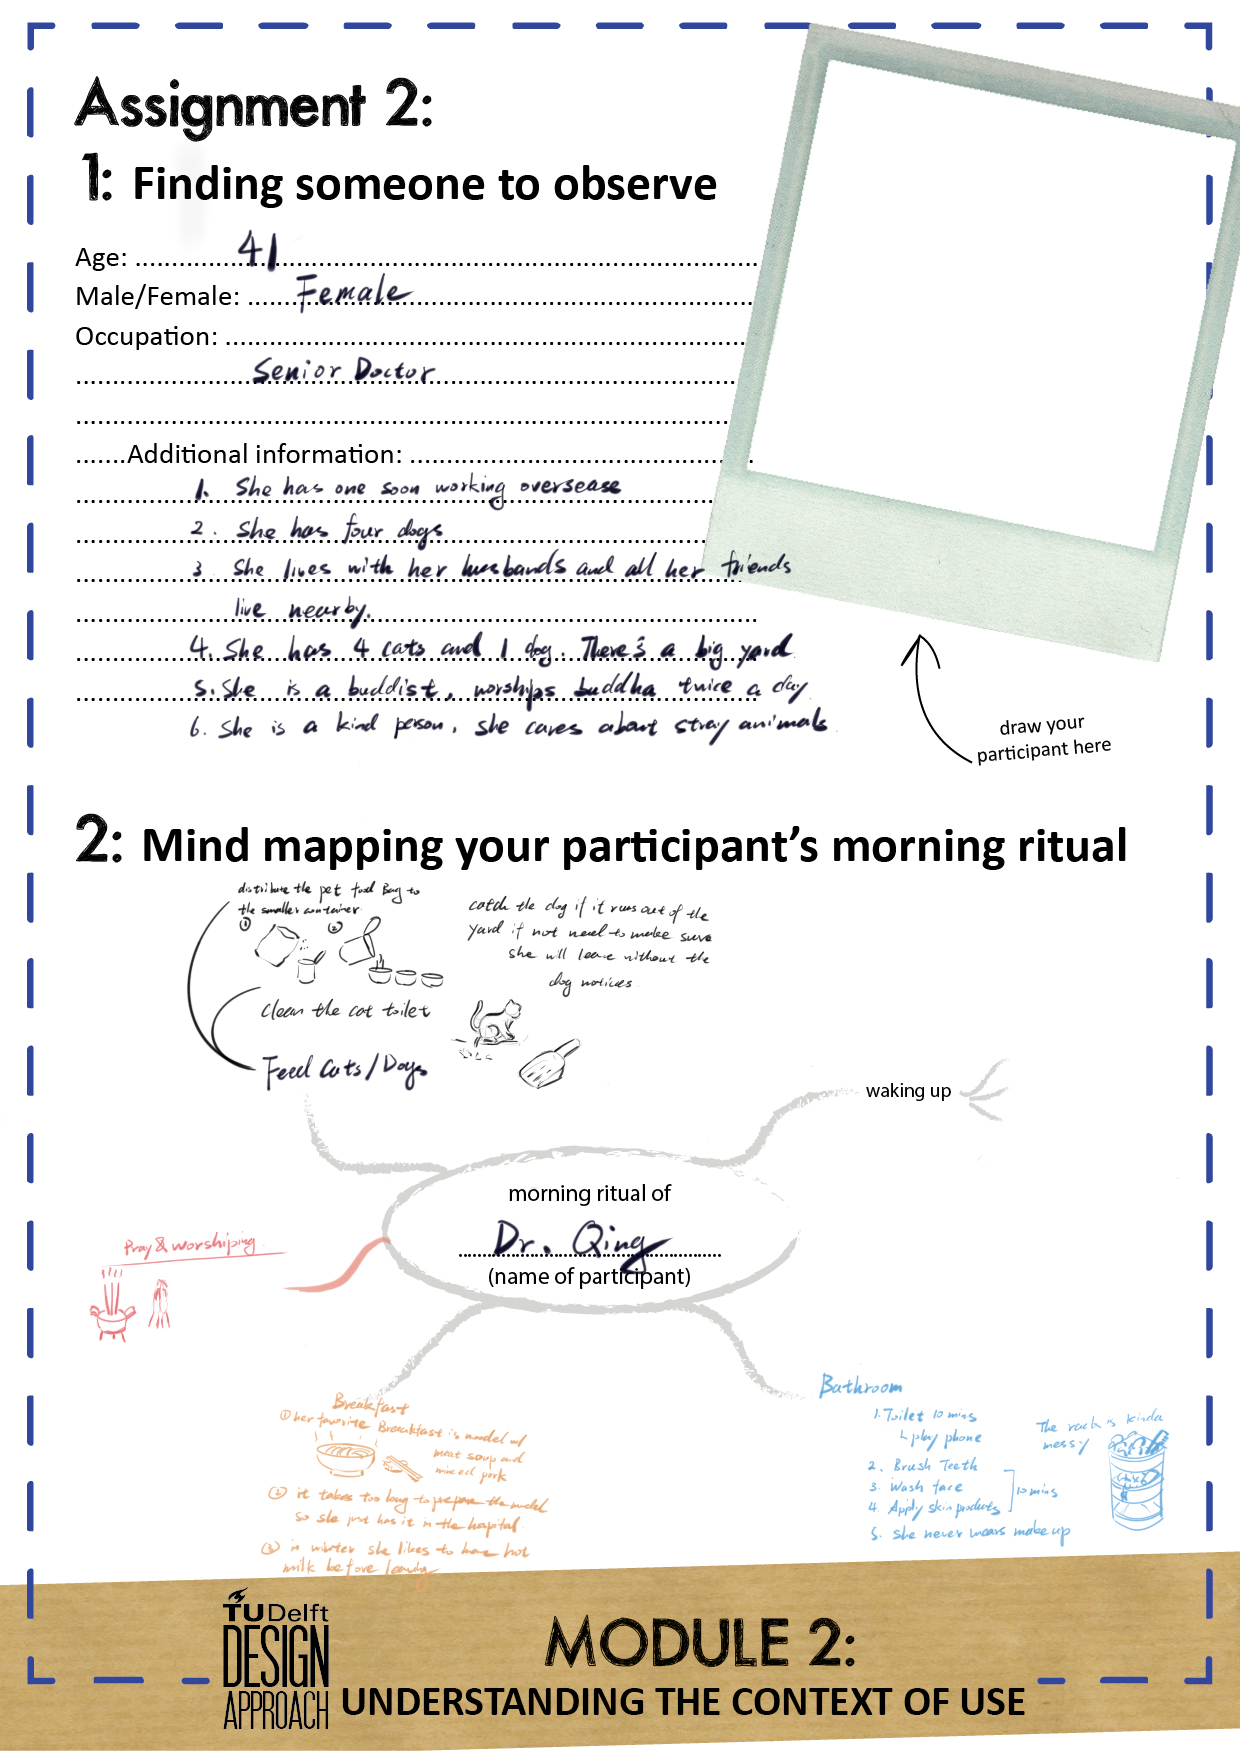 Assignment 2:
1: Finding someone to observe
Age: 41
Male/Female: Female
Occupation:
Senior Doctor
Additional information:
1. She has one soon working oversease
2. She has four dogs
3 She lives with her husbands and all her friends
live nearby.
4. She has 4 cats and 1 dog. There's a big yard
5. She is a buddist, worships buddha twice a day
6. She is a kind person, she cares about stray animals
draw your
participant here
2: Mind mapping your participant's morning ritual
distribute the pet food Bag to
the smaller container
① ②
catch the dog if it runs out of the
yard if not need to make sure
she will leave without the
dog notices
Clean the cat toilet
Feed Cats/Dogs
waking up
morning ritual of
Dr. Qing
(name of participant)
Pray & worshiping
Breakfast
① her favorite Breakfast is noodel w/
meat soup and
minced pork
② it takes too long to prepare the noodel
so she just has it in the hospital
③ in winter she likes to have hot
milk before leaving
Bathroom
1. Toilet 10 mins
play phone
2. Brush Teeth
3. Wash face
4. Apply skin products
10 mins
5. she never wears make up
The rack is kinda
messy
TU Delft
DESIGN
APPROACH
MODULE 2:
UNDERSTANDING THE CONTEXT OF USE